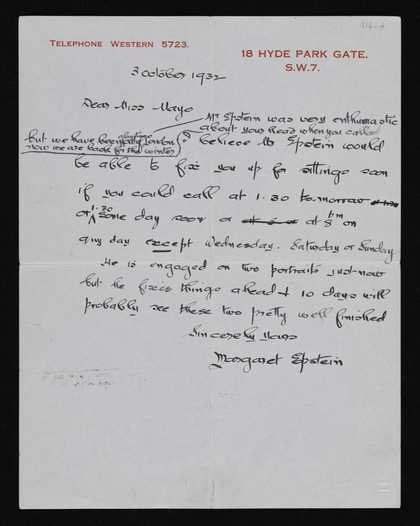 TELEPHONE WESTERN 5723.
18 HYDE PARK GATE.
S.W.7.
3 October 1932
Dear Miss Mayo
Mr Epstein was very enthusiastic
about your Head when you called
but we have been away from London
now we are back for the winter
I believe Mr Epstein would
be able to fix you up for sittings soon
if you could call at 1.30 tomorrow
or 1.30 some day soon or at 8 pm on
any day except Wednesday. Saturday or Sunday
He is engaged on two portraits just now
but he fixes things ahead & 10 days will
probably see these two pretty well finished
Sincerely Yours
Margaret Epstein